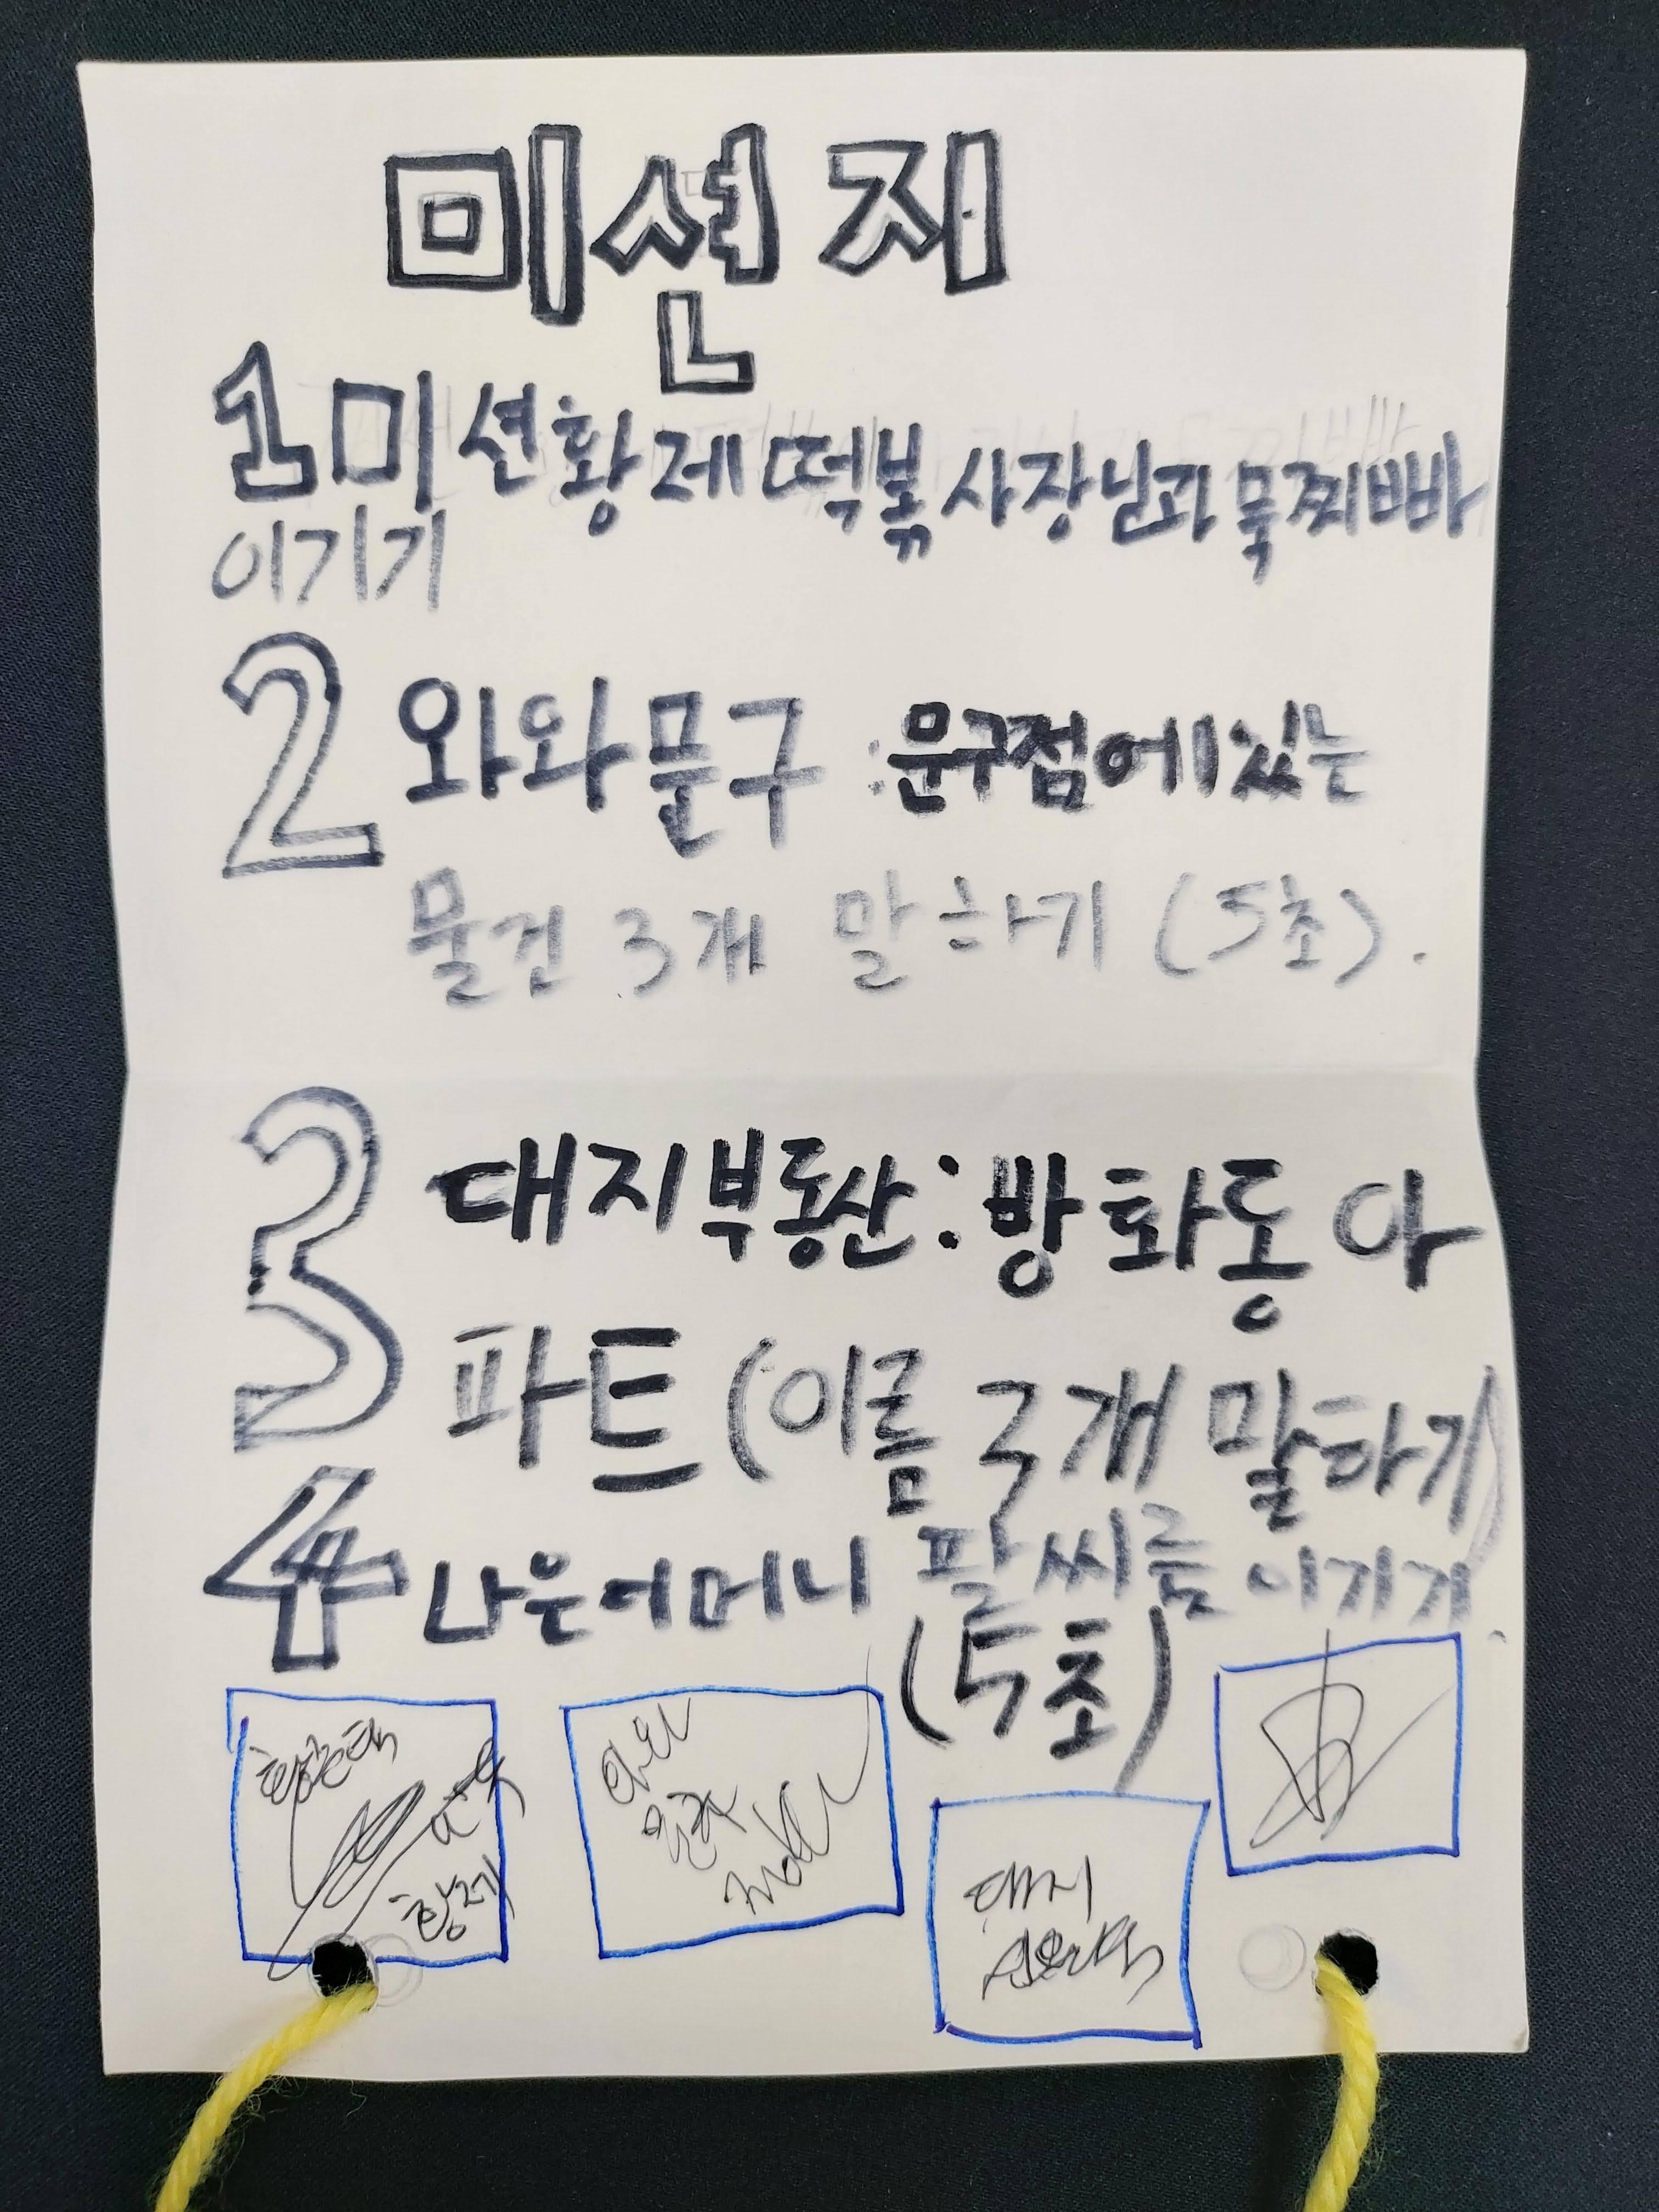 미션지
1 미션 황제떡볶 사장님과 묵찌빠
이기기
2 와와문구 : 문구점에 있는
물건 3개 말하기 (5초).
3 대지부동산 : 방화동 아
파트 (이름 3개 말하기)
4 나은어머니 팔씨름 이기기
(5초)
황제
와와
문구
대지